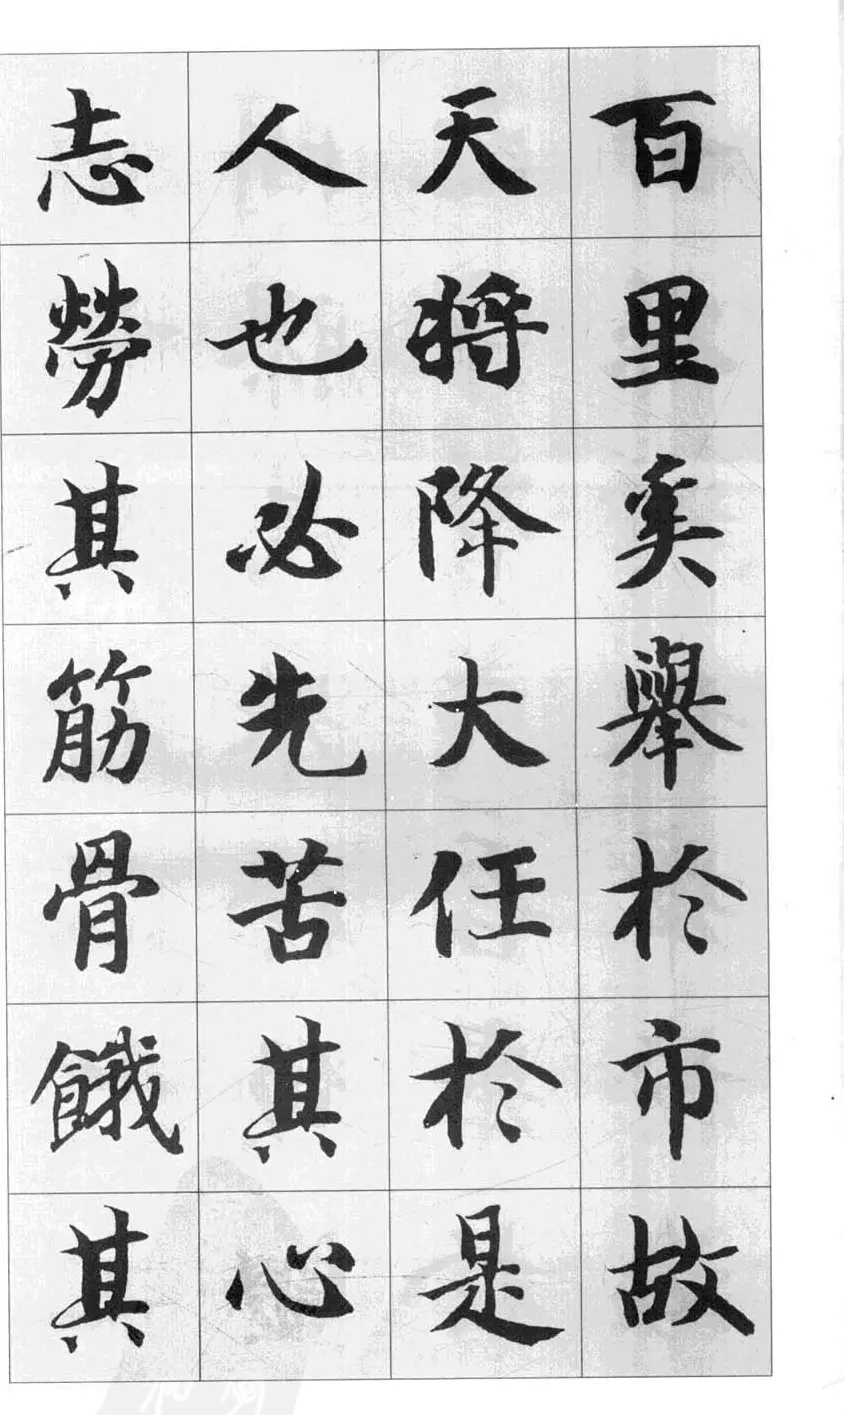 百里奚舉於市故
天將降大任於是
人也必先苦其心
志勞其筋骨餓其